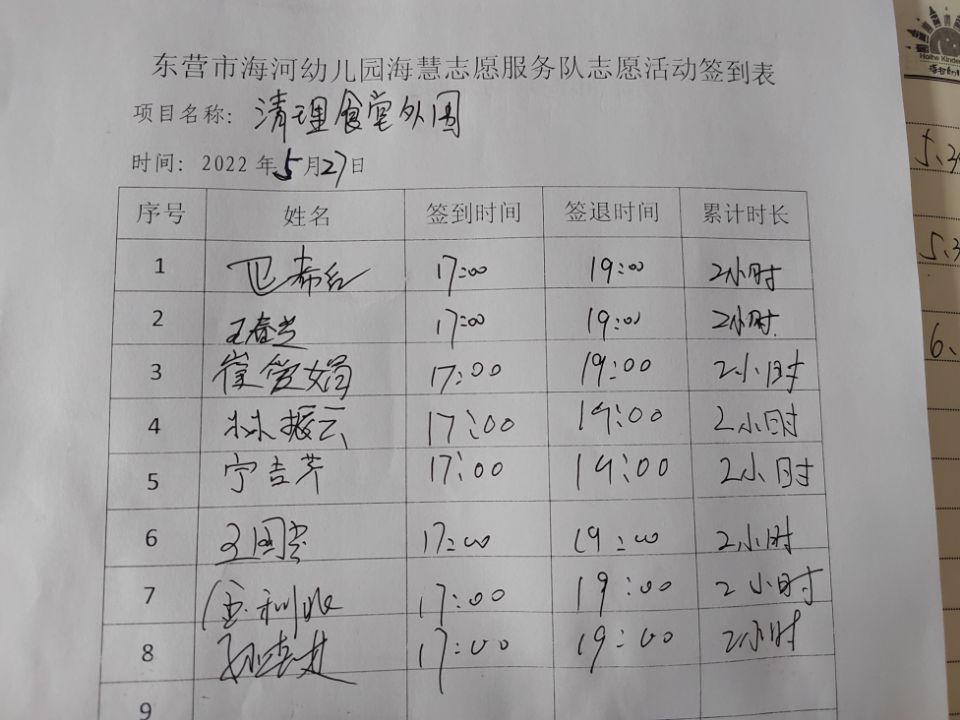 东营市海河幼儿园海慧志愿服务队志愿活动签到表
项目名称：清理食堂外围
时间：2022年5月27日
序号 姓名 签到时间 签退时间 累计时长
1 17:00 19:00 2小时
2 王春兰 17:00 19:00 2小时
3 17:00 19:00 2小时
4 林振云 17:00 19:00 2小时
5 宁吉芹 17:00 19:00 2小时
6 17:00 19:00 2小时
7 17:00 19:00 2小时
8 17:00 19:00 2小时
9
Haihe Kinder
5.3
5.3
6.